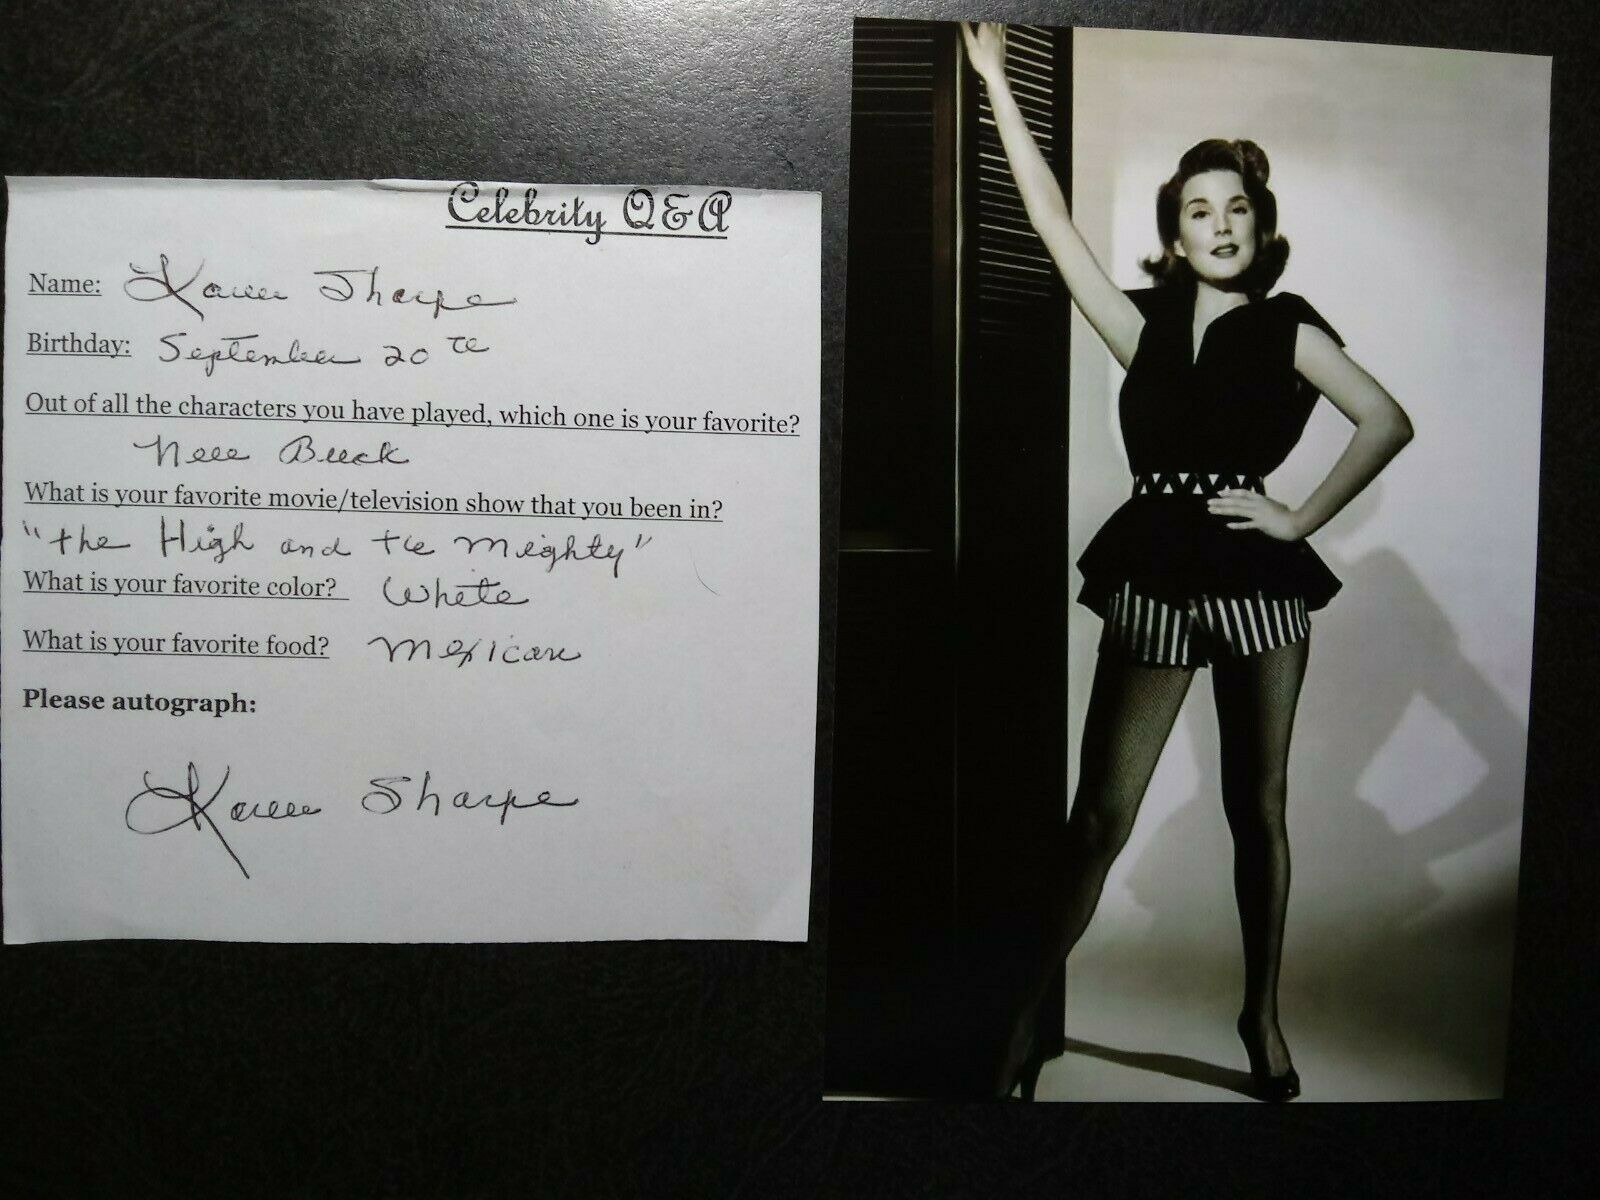 Celebrity Q&A
Name: Karen Sharpe
Birthday: September 20th
Out of all the characters you have played, which one is your favorite?
Nell Buck
What is your favorite movie/television show that you been in?
"the High and the Mighty"
What is your favorite color? White
What is your favorite food? Mexican
Please autograph:
Karen Sharpe